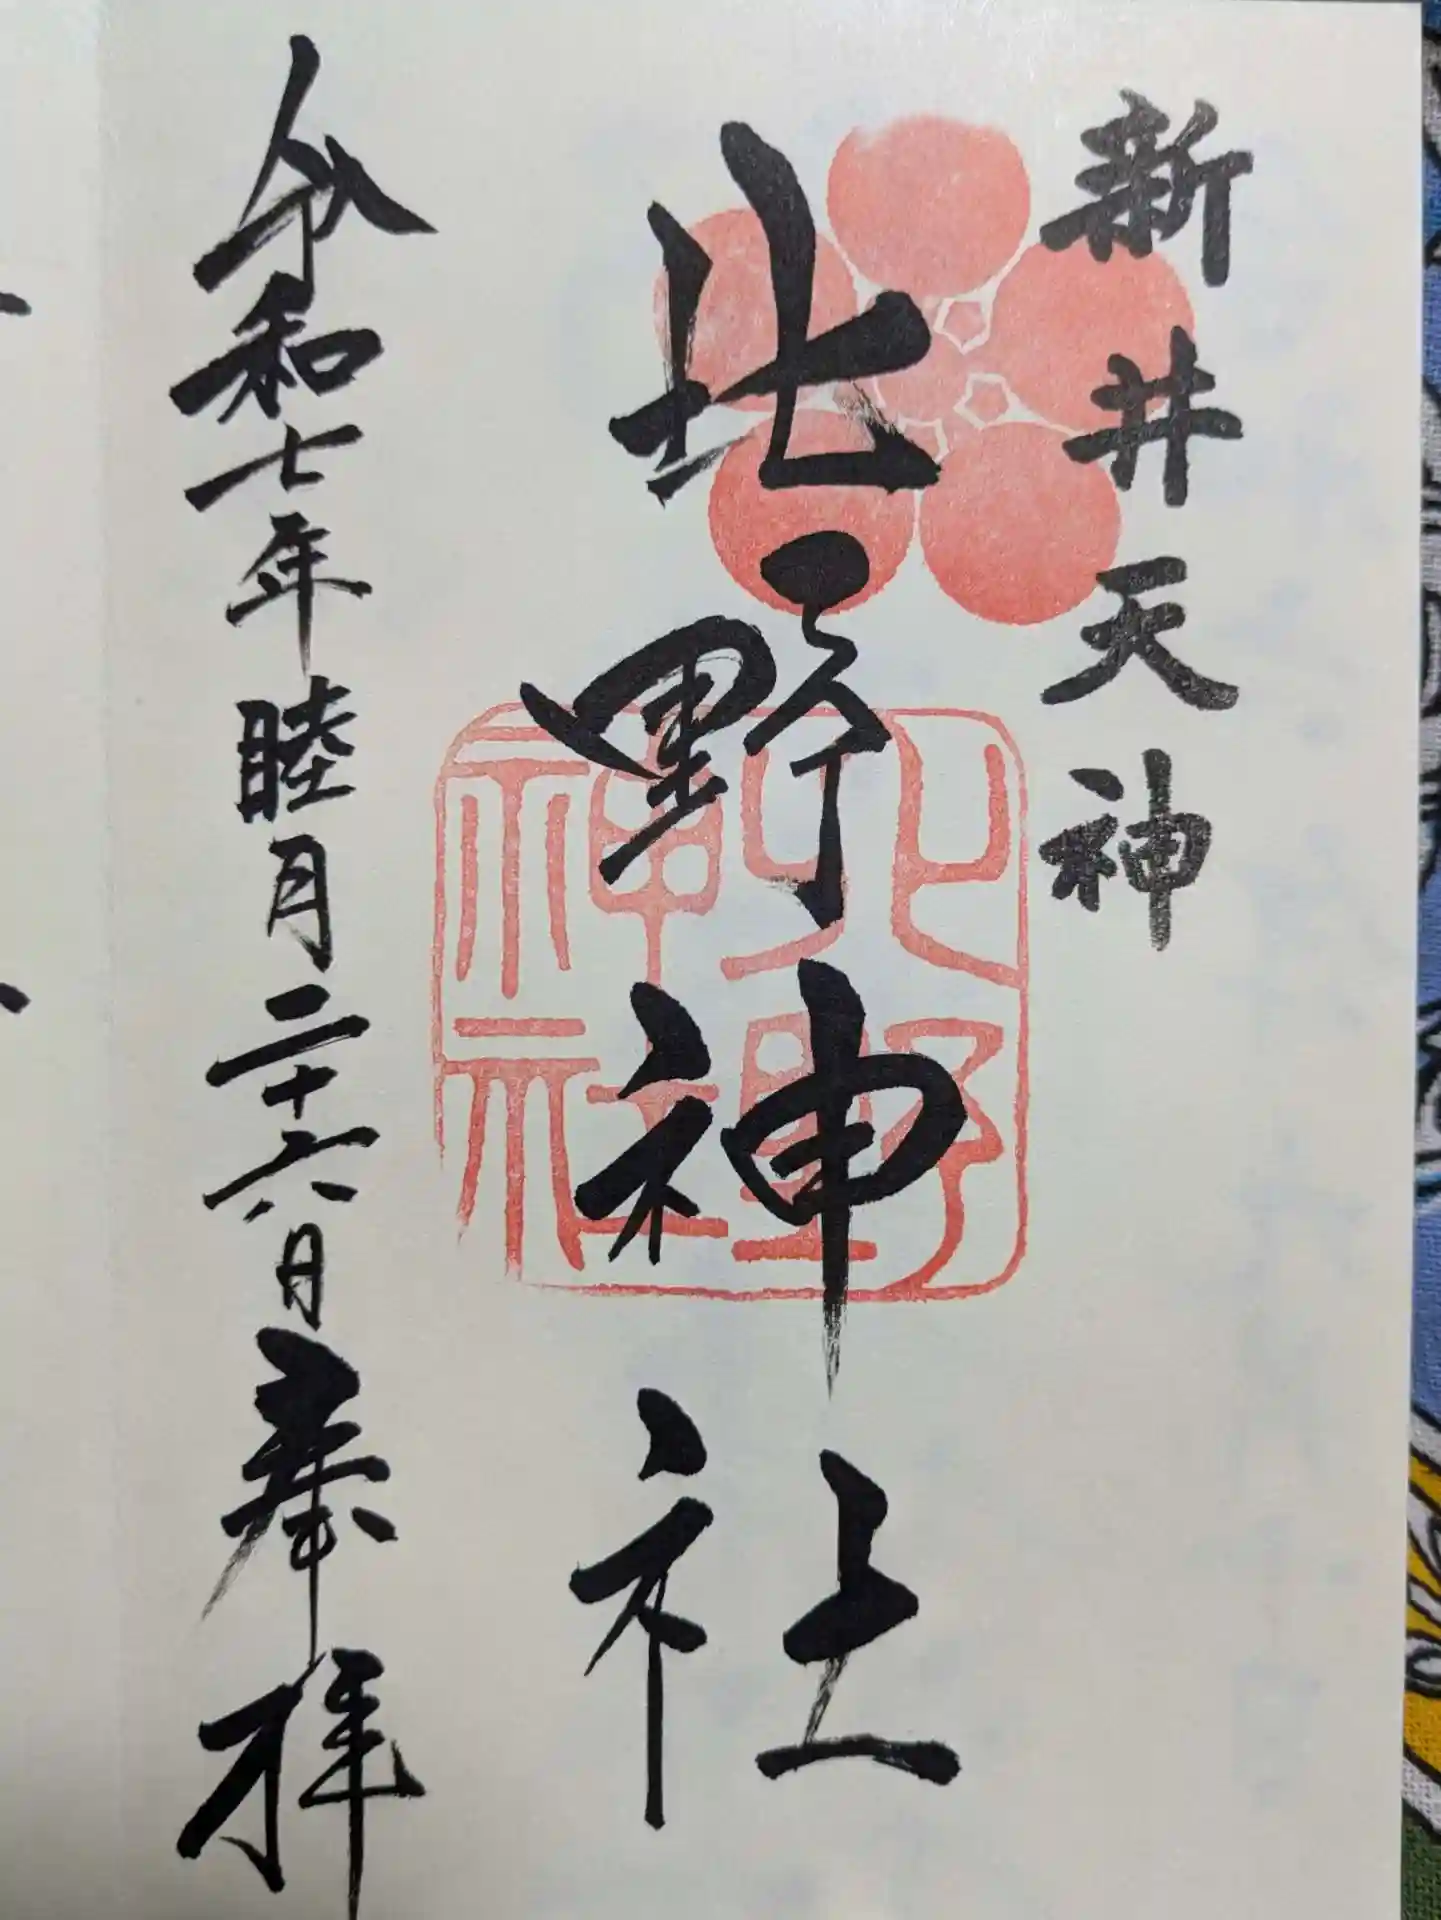 新井天神
北野神社
令和七年睦月二十六日奉拝
北野
神社